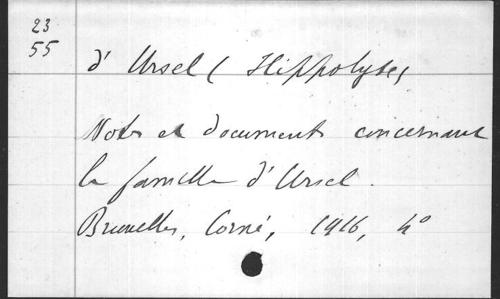 23
55
d'Ursel (Hippolyte)
Notes et documents concernant
la famille d'Ursel.
Bruxelles, Corné, 1916, 4°